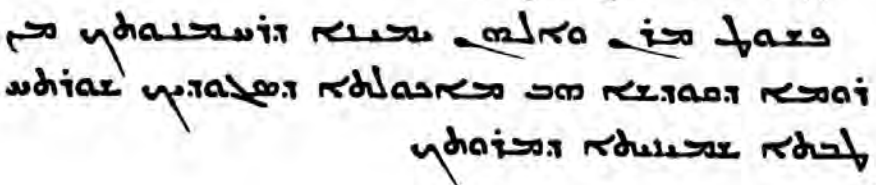 ܦܫܘܛ ܡܪܝ ܘܐܠܗܝ ܝܡܝܢܐ ܕܪܚܡܢܘܬܟ ܡܢ
ܪܘܡܐ ܕܩܘܕܫܐ ܗܒ ܡܐܟܘܠܬܐ ܕܣܓܘܕܝܟ ܫܘܪܬܚ
ܛܒܬܐ ܫܡܝܢܬܐ ܕܡܪܘܬܟ